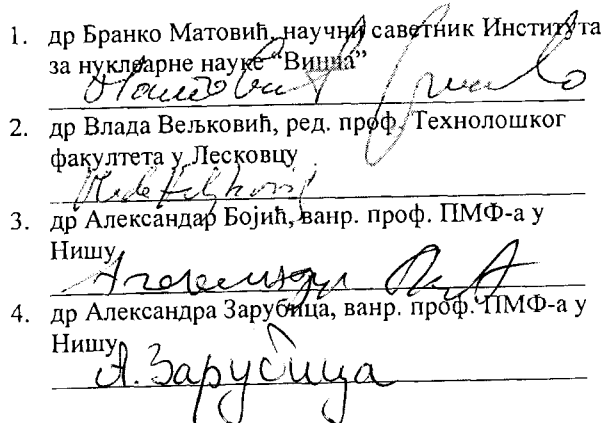 1. др Бранко Матовић, научни саветник Института
за нуклеарне науке “Винча”
Матовић Бранко
2. др Влада Вељковић, ред. проф. Технолошког
факултета у Лесковцу
3. др Александар Бојић, ванр. проф. ПМФ-а у
Нишу
Александар
4. др Александра Зарубица, ванр. проф. ПМФ-а у
Нишу
А. Зарубица